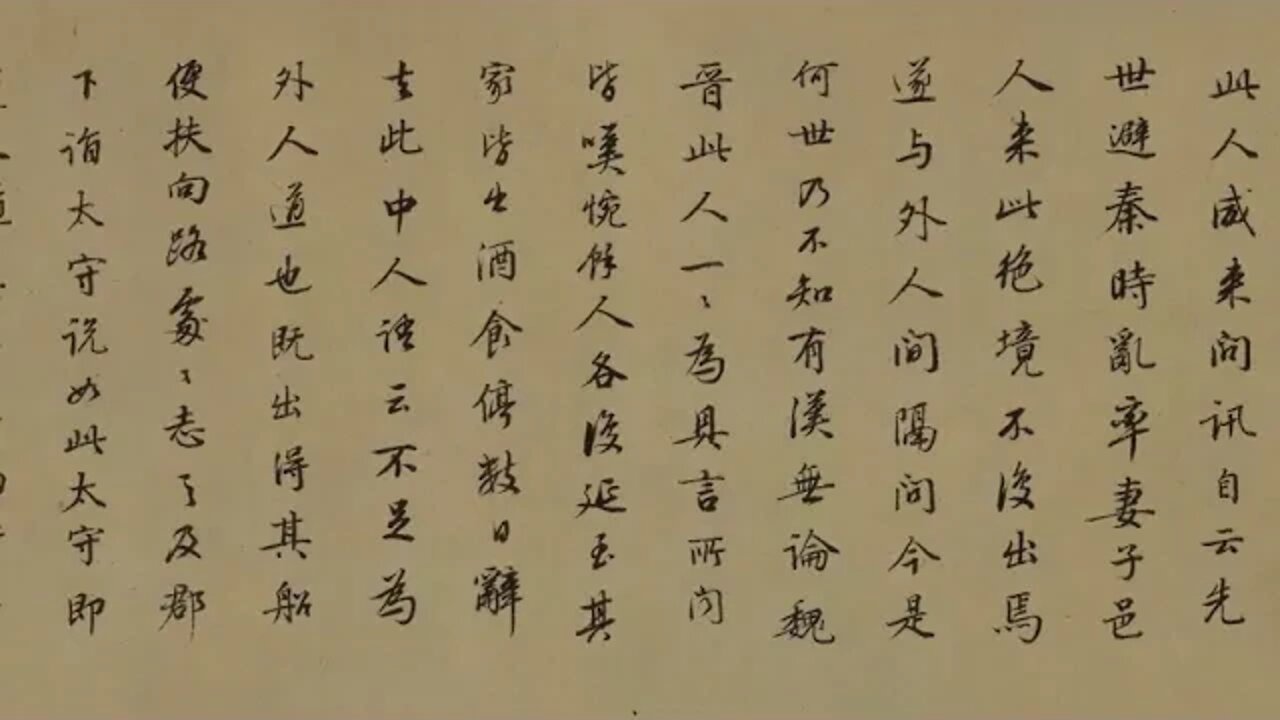 此人咸来问讯自云先
世避秦時亂率妻子邑
人来此绝境不復出焉
遂与外人间隔问今是
何世乃不知有漢無論魏
晋此人一〻為具言所问
皆嘆惋馀人各復延至其
家皆出酒食停数日辭
去此中人語云不足為
外人道也既出得其船
便扶向路處〻志之及郡
下詣太守说如此太守即